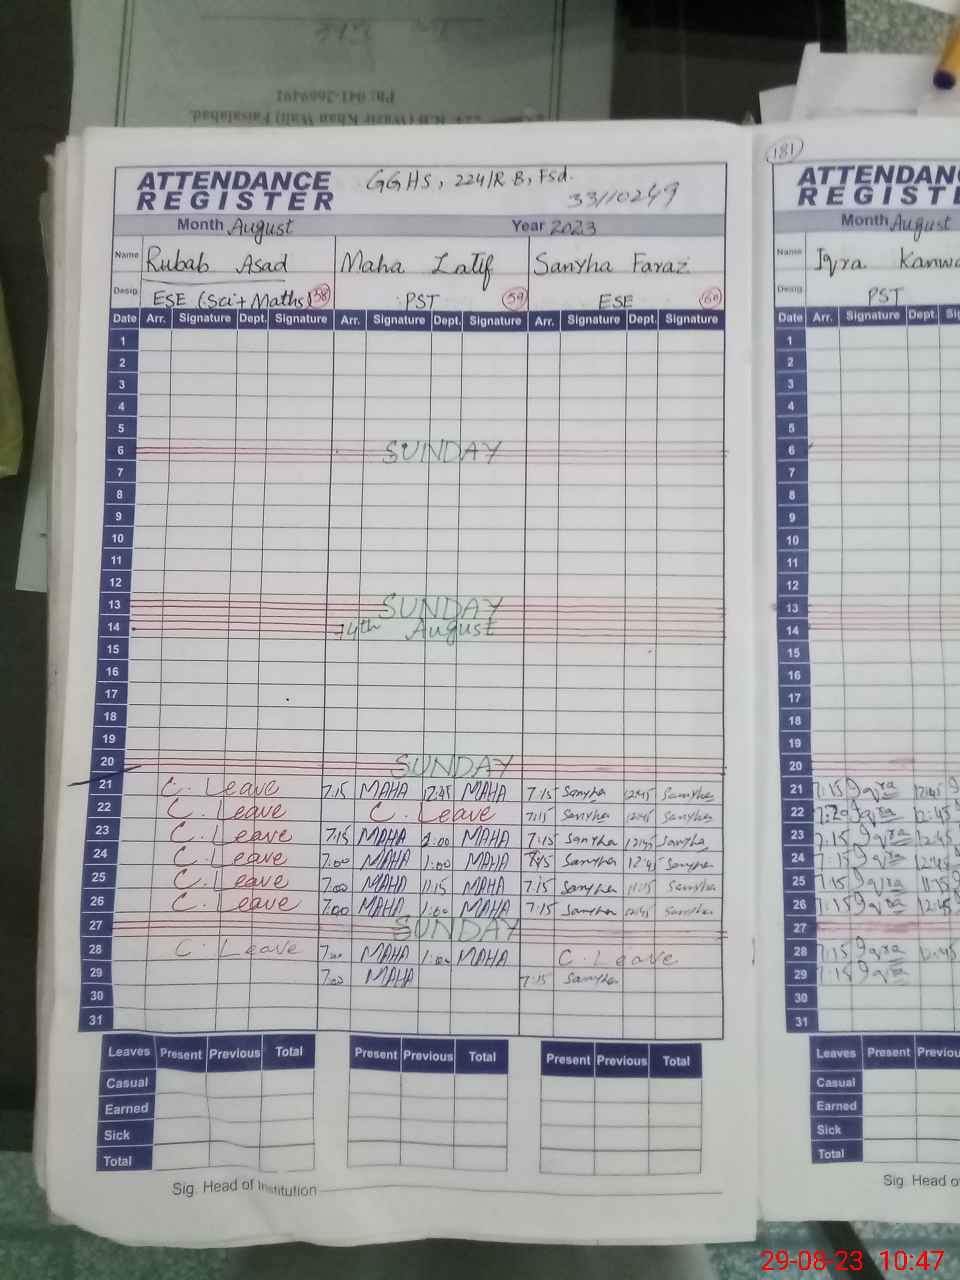 Ph: 041-2669491
224 R.B (Wazir Khan Wali) Faisalabad.
ATTENDANCE REGISTER GGHS, 224/R B, Fsd.
33110249
Month August Year 2023
Name Rubab Asad Maha Latif Sanyha Faraz
Desig. ESE (Sci+Maths) 58 PST 59 ESE 60
Date Arr. Signature Dept. Signature Arr. Signature Dept. Signature Arr. Signature Dept. Signature
1
2
3
4
5
6 SUNDAY
7
8
9
10
11
12
13 SUNDAY
14 14th August
15
16
17
18
19
20 SUNDAY
21 C. Leave 7:15 MAHA 12:45 MAHA 7:15 Sanyha 12:45 Sanyha
22 C. Leave C. Leave 7:15 Sanyha 12:45 Sanyha
23 C. Leave 7:15 MAHA 1:00 MAHA 7:15 Sanyha 12:45 Sanyha
24 C. Leave 7:00 MAHA 1:00 MAHA 7:15 Sanyha 12:45 Sanyha
25 C. Leave 7:00 MAHA 11:15 MAHA 7:15 Sanyha 11:15 Sanyha
26 C. Leave 7:00 MAHA 1:00 MAHA 7:15 Sanyha 12:45 Sanyha
27 SUNDAY
28 C. Leave 7:00 MAHA 1:00 MAHA C. Leave
29 7:00 MAHA 7:15 Sanyha
30
31
Leaves Present Previous Total Present Previous Total Present Previous Total
Casual
Earned
Sick
Total
Sig. Head of Institution
181
ATTENDANC
REGISTE
Month August
Name Iqra Kanwa
Desig. PST
Date Arr. Signature Dept. Sig
1
2
3
4
5
6
7
8
9
10
11
12
13
14
15
16
17
18
19
20
21 7:15 Iqra 12:45
22 7:20 Iqra 12:45
23 7:15 Iqra 12:45
24 7:15 Iqra 12:45
25 7:15 Iqra 11:15
26 7:15 Iqra 12:45
27
28 7:15 Iqra 12:45
29 7:15 Iqra
30
31
Leaves Present Previou
Casual
Earned
Sick
Total
Sig. Head o
29-08-23 10:47